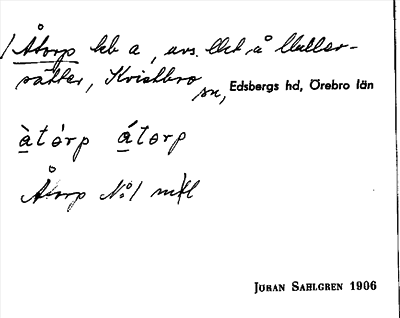 1/ Åtorp hb a, avs. lht å Muller-
sätter, Kvistbro sn, Edsbergs hd, Örebro län
àtórp átorp
Åtorp No 1 mtl
JÖRAN SAHLGREN 1906